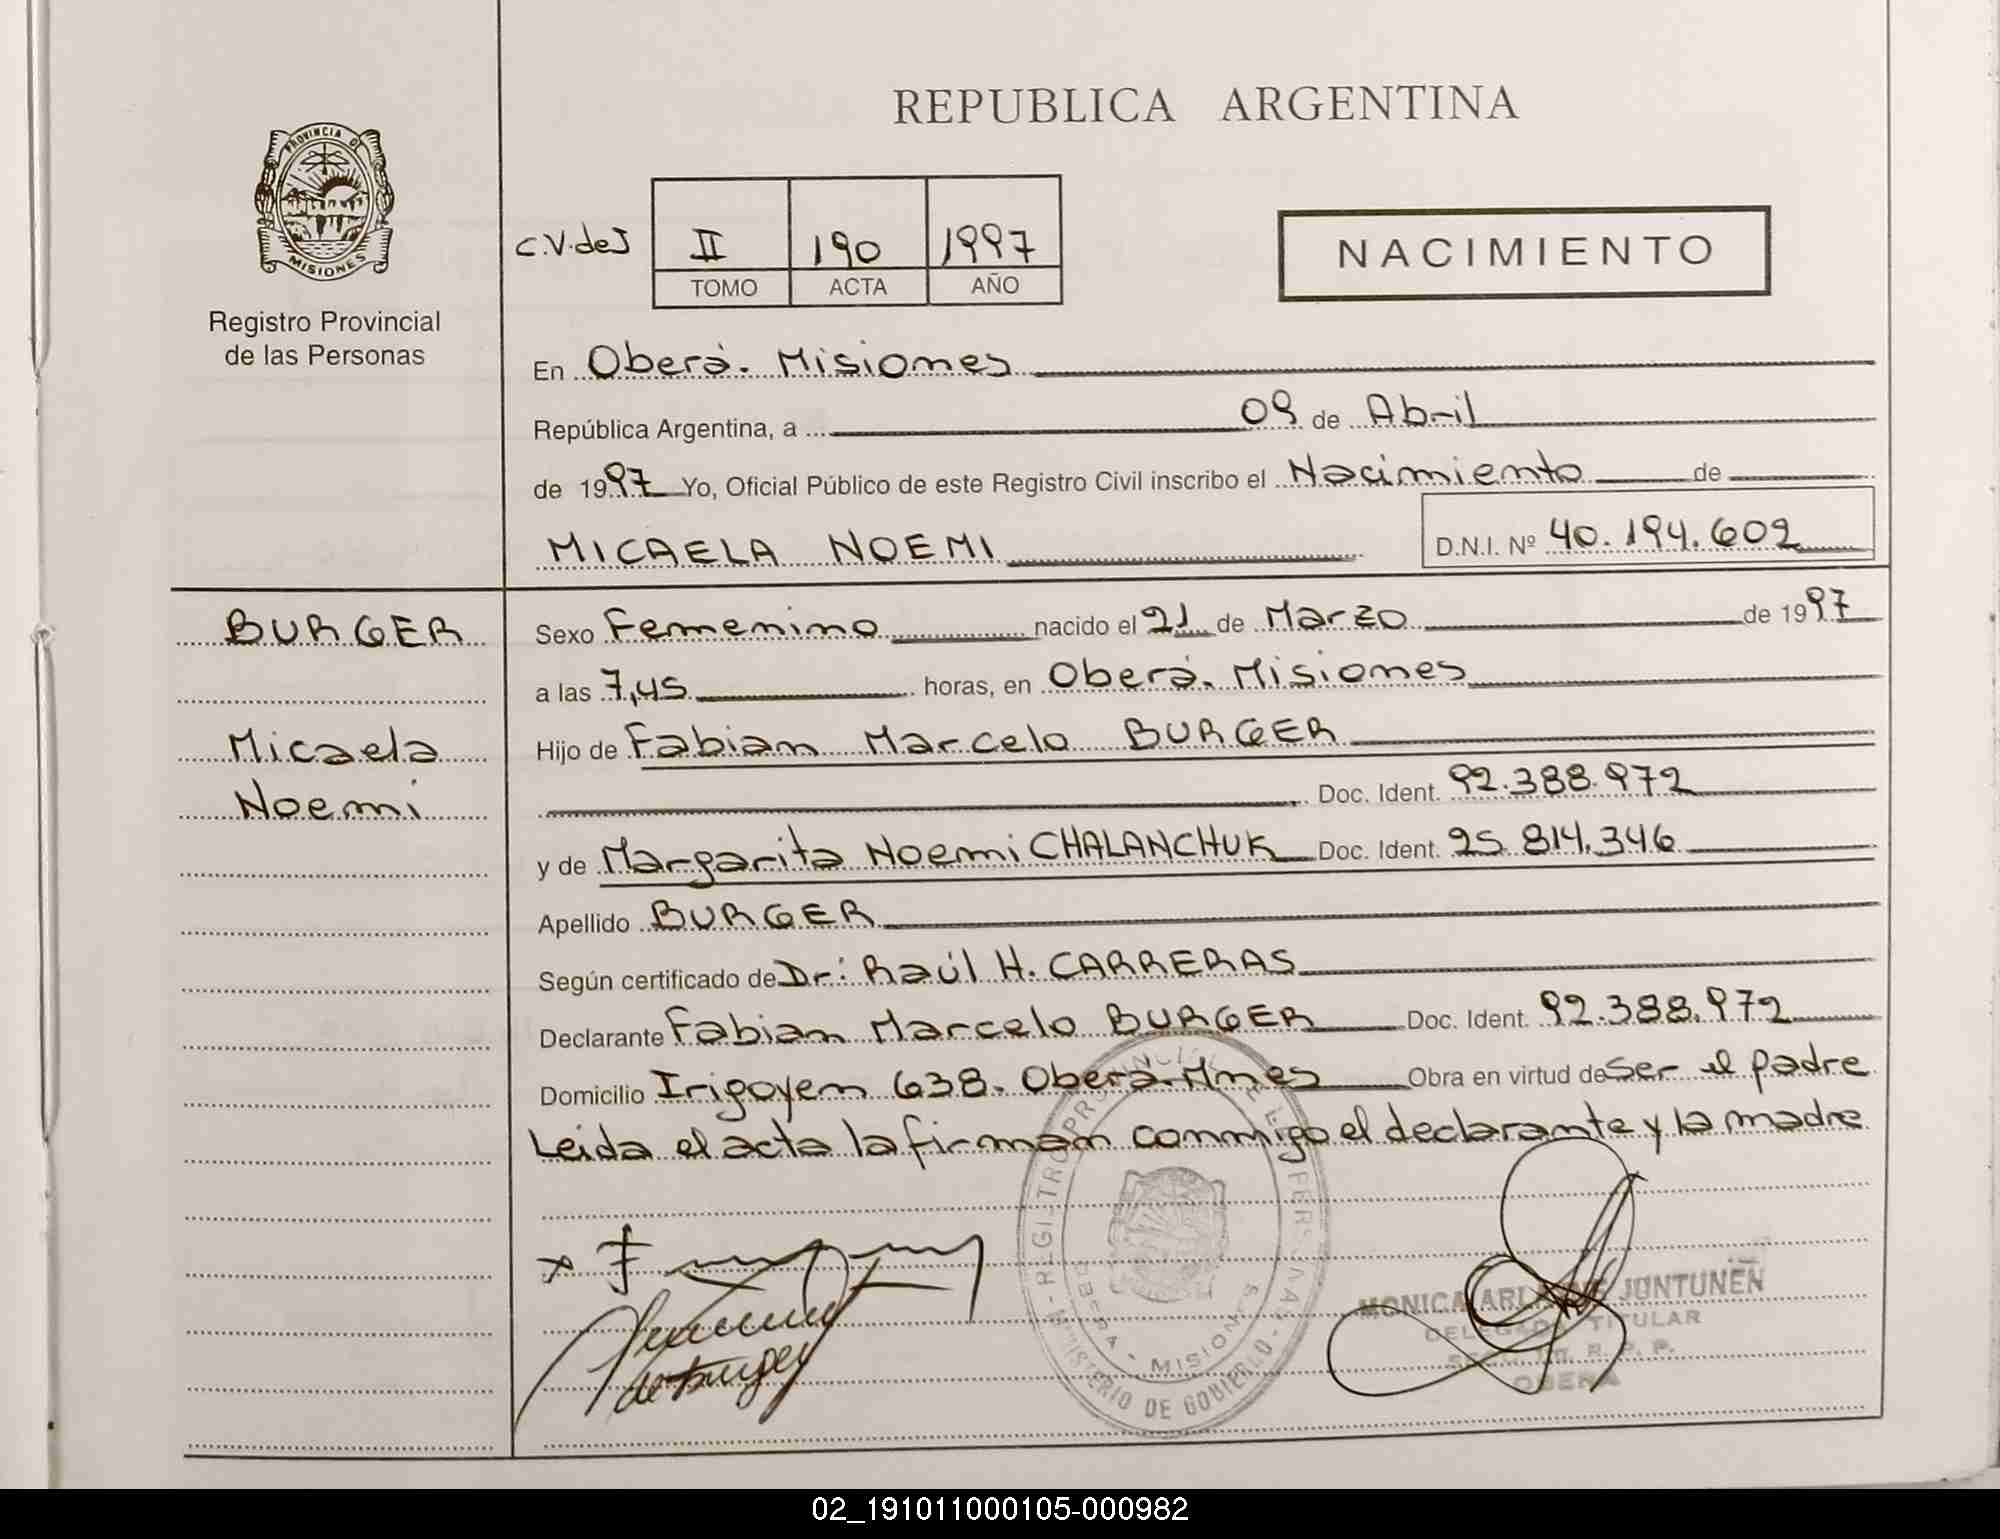 REPUBLICA ARGENTINA
PROVINCIA DE
MISIONES
Registro Provincial
de las Personas
C.V.deJ
II 190 1997
TOMO ACTA AÑO
NACIMIENTO
En Oberá. Misiones
República Argentina, a 09 de Abril
de 1997 Yo, Oficial Público de este Registro Civil inscribo el Nacimiento de
MICAELA NOEMI D.N.I. Nº 40.194.602
BURGER
Micaela
Noemi
Sexo Femenino nacido el 21 de Marzo de 1997
a las 7,45 horas, en Oberá. Misiones
Hijo de Fabian Marcelo BURGER
Doc. Ident. 92.388.972
y de Margarita Noemi CHALANCHUK Doc. Ident. 25.814.346
Apellido BURGER
Según certificado de Dr: Raúl H. CARRERAS
Declarante Fabian Marcelo BURGER Doc. Ident. 92.388.972
Domicilio Irigoyen 638. Oberá-Mnes Obra en virtud de Ser el padre
Leida el acta la firman conmigo el declarante y la madre
MINISTERIO DE GOBIERNO - REGISTRO PROVINCIAL DE LAS PERSONAS -
OBERA - MISIONES
MONICA JUNTUNEN
DELEGADO TITULAR
R. P. P.
OBERA
02_191011000105-000982